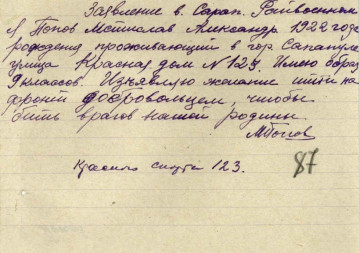 Заявление в. Сарап. Райвоенком
Я Попов Мстислав Александр. 1922 года
рождения проживающий в гор. Сапапуле
улица Красная дом №123. Имею образ
9 классов. Изъявляю желание итти на
фронт добровольцем, чтобы
бить врагов нашей родины.
МПопов
Красного спорта 123.
87